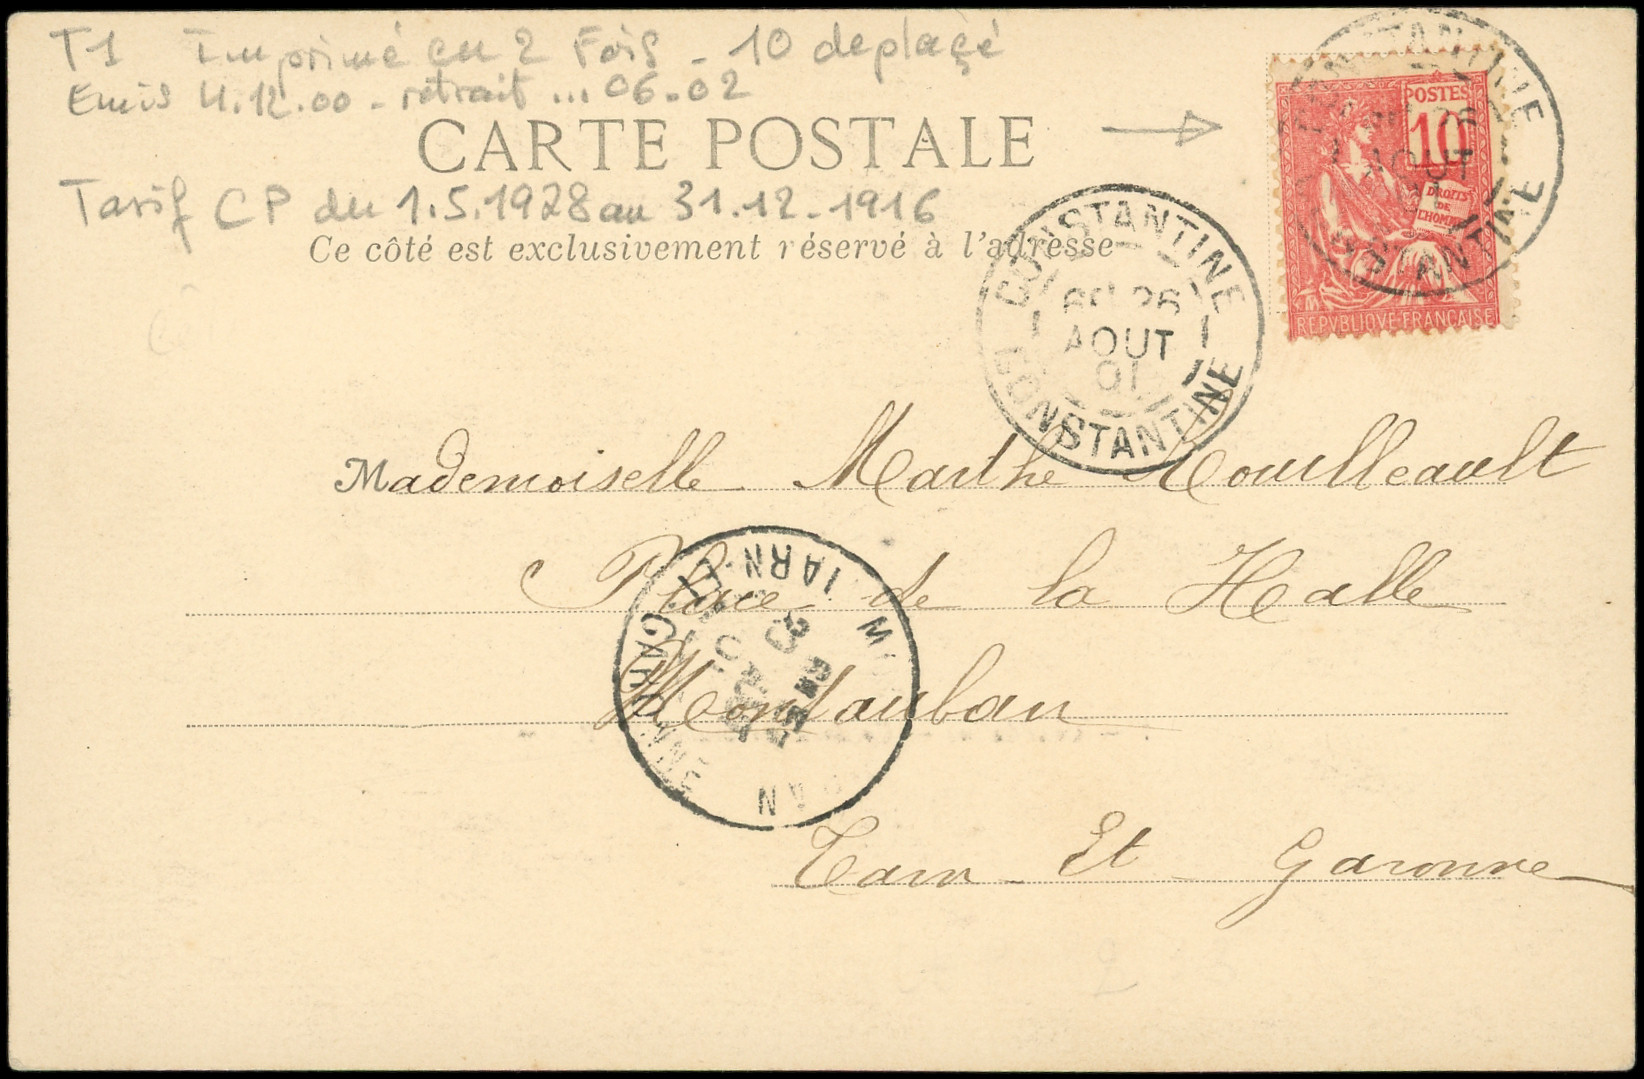 T1 Imprimé en 2 Fois - 10 deplaçé
Emis 4.12.00 - retrait ... 06-02
CARTE POSTALE
Tarif CP du 1.5.1928 au 31.12.1916
Ce côté est exclusivement réservé à l'adresse
POSTES
10
DROITS
DE
L'HOMME
REPVBLIQVE FRANÇAISE
CONSTANTINE
AOUT
CONSTANTINE
CONSTANTINE
26
AOUT
01
CONSTANTINE
Mademoiselle Marthe
Place de la Halle
Montauban
Tarn Et Garonne
TARN-ET-GARONNE